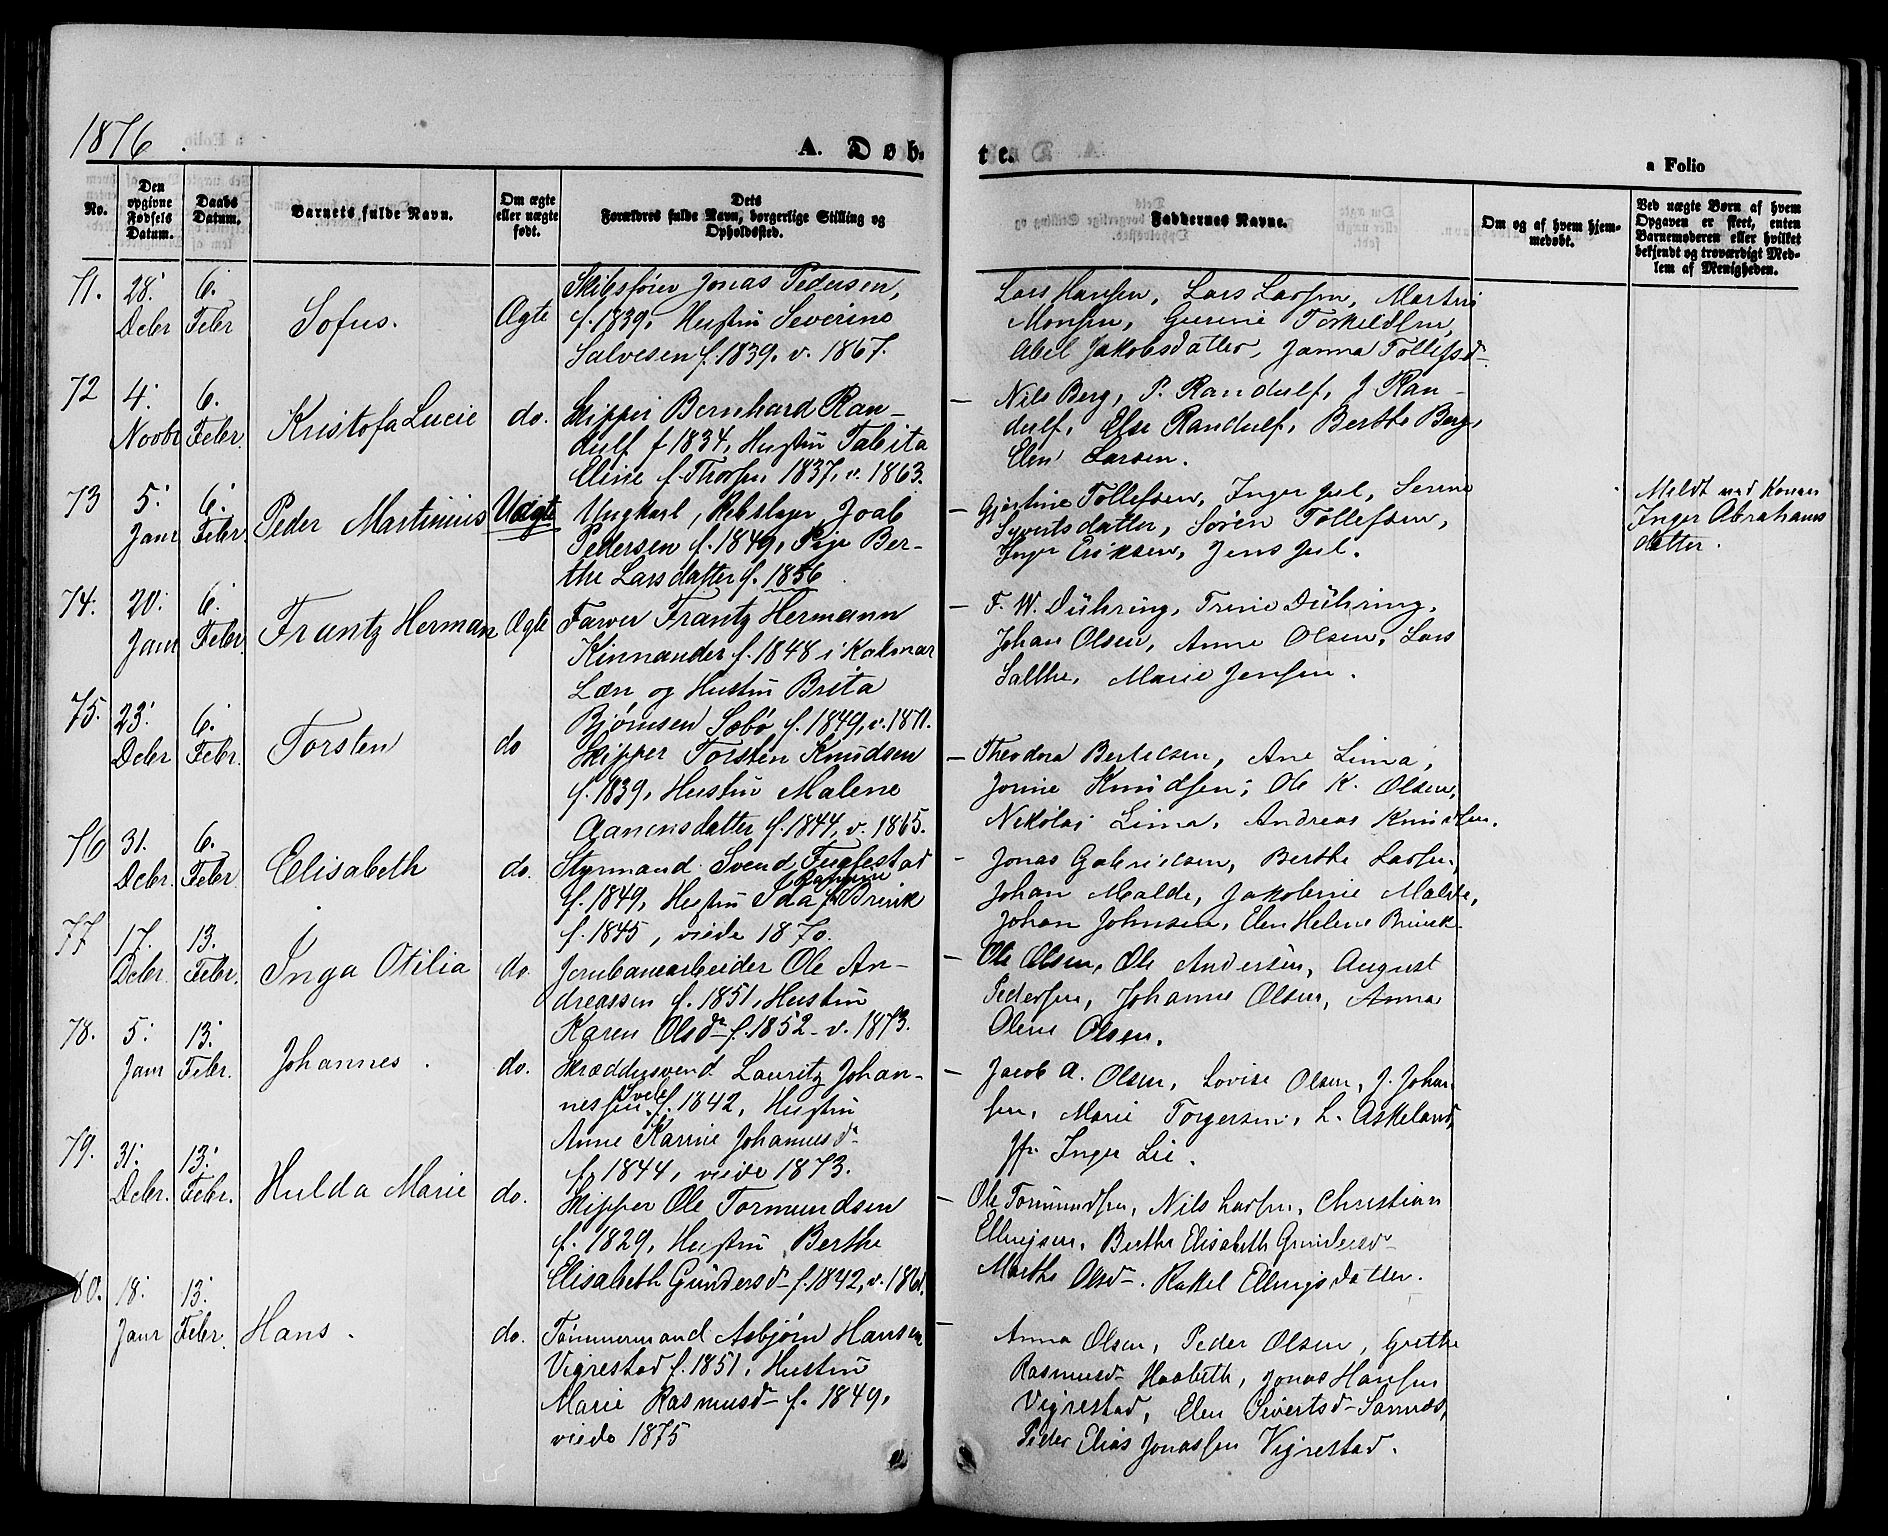 1876
A. Døb- te.
a Folio
No.
Den opgivne Fødsels Datum.
Daabs Datum.
Barnets fulde Navn.
Om ægte eller uægte født.
Dets Forældres fulde Navn, borgerlige Stilling og Opholdssted.
Faddernes Navne.
Om og af hvem hjemmedøbt.
Ved uægte Børn af hvem Opgaven er skeet, enten Barnemoderen eller hvilket bekjendt og troværdigt Medlem af Menigheden.
71. 28. Decbr 6. Febr Sofus. Ægte
Skibsfører Jonas Pedersen,
f. 1839, Hustru Severine
Salvesen f. 1839. v. 1867.
Lars Hansen, Lars Larsen, Martin
Monsen, Gurine Torkildsen,
Abel Jakobsdatter, Janna Tollefsd
72 4. Novbr 6. Febr. Kristofa Lucie do.
Skipper Bernhard Ran-
dulf f 1834, Hustru Tabita
Eline f. Thorsen 1837, v. 1863.
– Nils Berg, P. Randulf, J Ran-
dulf, Else Randulf, Berthe Berg,
Elen Larsen.
73 5. Janr 6. Febr. Peder Martinius Uægte
Ungkarl, Rebslager Joab
Pedersen f. 1849, Pige Ber-
the Larsdatter f. 1856
– Gjertine Tollefsen, Inger Jul, Serine
Syvertsdatter, Søren Tollefsen,
Inger Eriksen, Jens Jul.
Meldt ved Konen
Inger Abrahams
datter.
74. 20. Janr 6. Febr. Frantz Herman Ægte
Farver Frantz Hermann
Kinnander f. 1848 i Kalmar
Læn, og Hustru Brita
Bjørnsen Sæbø f. 1849, v. 1871.
– F. W. Dühring, Trine Dühring,
Johan Olsen, Anne Olsen, Lars
Salthe, Marie Jensen.
75. 23. Decbr 6. Febr. Torsten do
Skipper Torsten Knudsen
f. 1839, Hustru Malene
Aanensdatter f. 1844, v. 1865.
– Theodora Bertelsen, Ane Lima,
Jorine Knudsen, Ole K. Olsen,
Nikolai Lima, Andreas Knudsen.
76 31. Decbr. 6. Febr Elisabeth do.
Styrmand Svend Fuglestad
f. 1849, Hustru Ida f. Brink
f. 1845, viede 1870.
– Jonas Gabrielsen, Berthe Larsen,
Johan Malde, Jakobine Malde,
Johan Johnsen, Elen Helene Brink.
77 17. Decbr. 13. Febr. Inga Otilia do.
Jernbanearbeider Ole An-
dreassen f. 1851, Hustru
Karen Olsdr f. 1852 – v. 1873.
– Ole Olsen, Ole Andersen, August
Pedersen, Johanne Olsen, Anna
Olene Olsen.
78. 5. Janr 13. Febr. Johannes. do.
Skræddersvend Lauritz Johan-
nessen f. 1842, Hustru
Anne Karine Johannesdr
f. 1844, viede 1873.
– Jacob A. Olsen, Lovise Olsen, J. Johan
sen, Marie Torgersen, L. Askeland,
Jfr Inger Lie.
79. 31. Decbr. 13. Febr. Hulda Marie do.
Skipper Ole Tormundsen
f. 1829, Hustru Berthe
Elisabeth Gundersd f. 1842, v. 186
– Ole Tormundsen, Nils Larsen, Christian
Ellingsen, Berthe Elisabeth Gundersd
Marthe Olsd. Rakel Ellingsdatter.
80. 18. Janr 13. Febr. Hans. do.
Tømmermand Asbjørn Hansen
Vigrestad f. 1851, Hustru
Marie Rasmusd f. 1849,
viede 1875
– Anna Olsen, Peder Olsen, Grethe
Rasmusd Haabeth, Jonas Hansen
Vigrestad, Elen Sivertsd Sannæs,
Peder Elias Jonassen Vigrestad.